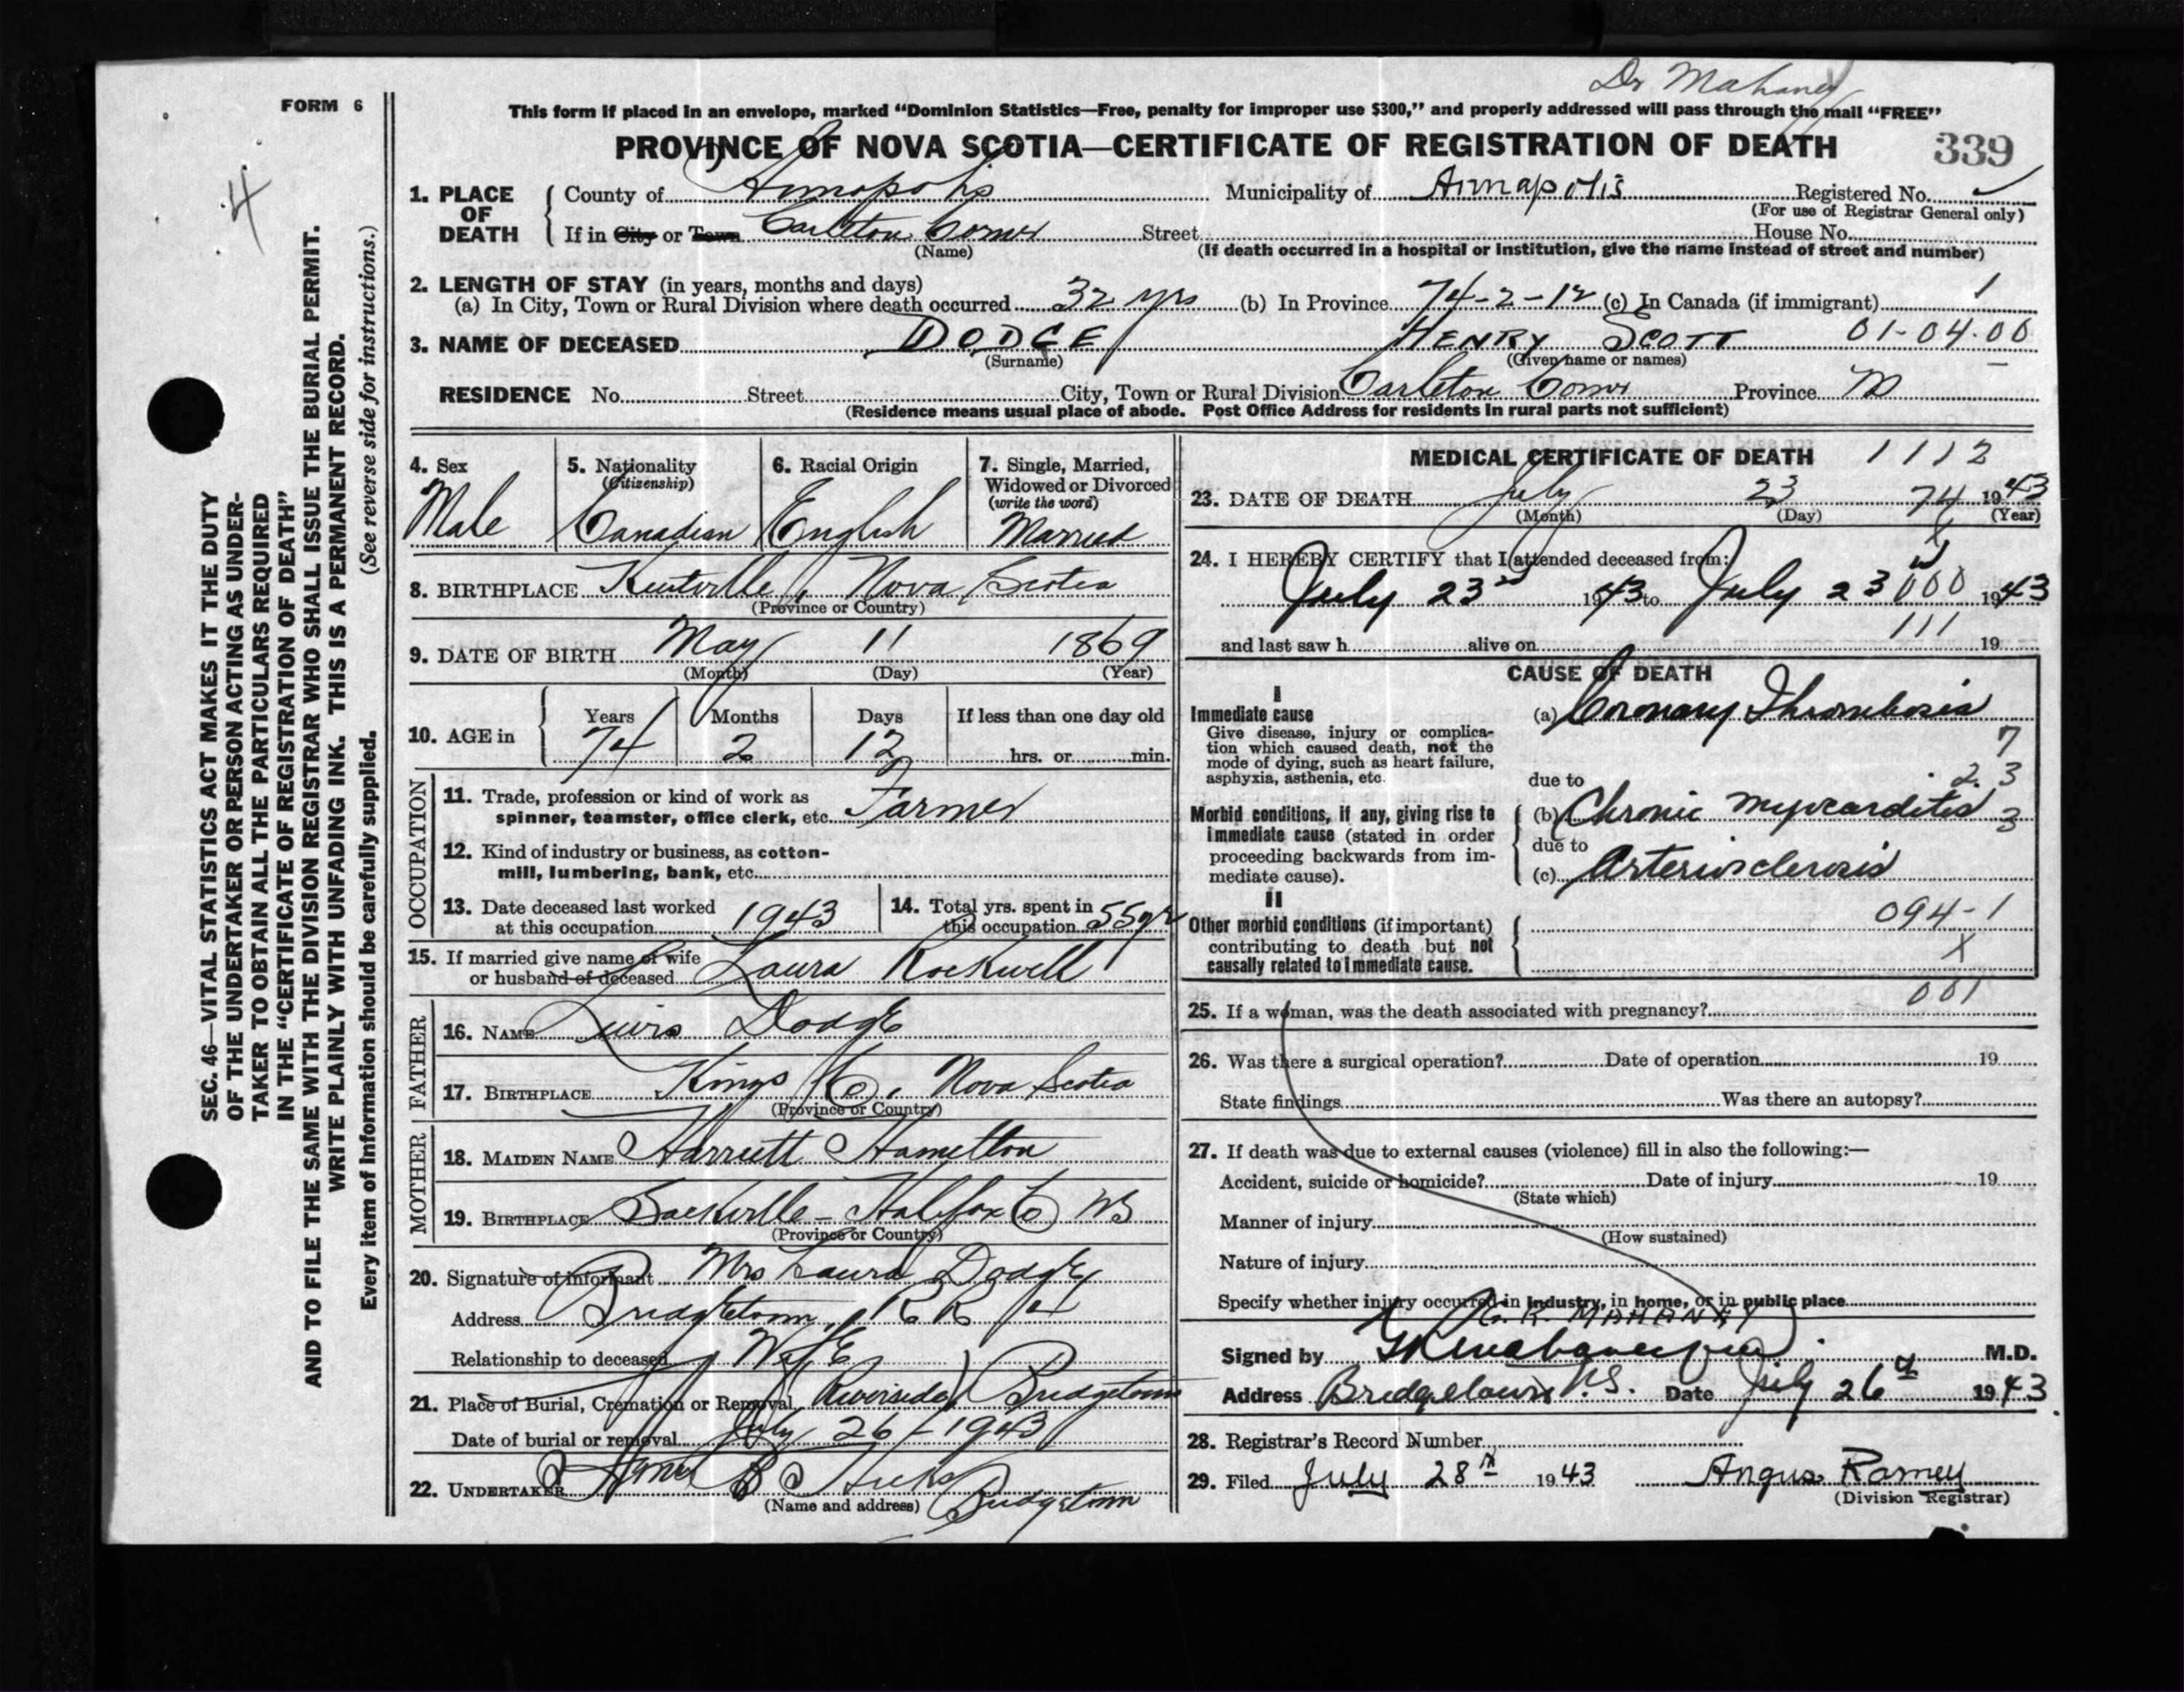 Dr Mahaney
FORM 6
This form if placed in an envelope, marked "Dominion Statistics—Free, penalty for improper use $300," and properly addressed will pass through the mail "FREE"
PROVINCE OF NOVA SCOTIA—CERTIFICATE OF REGISTRATION OF DEATH 339
4
SEC. 46—VITAL STATISTICS ACT MAKES IT THE DUTY
OF THE UNDERTAKER OR PERSON ACTING AS UNDER-
TAKER TO OBTAIN ALL THE PARTICULARS REQUIRED
IN THE "CERTIFICATE OF REGISTRATION OF DEATH"
AND TO FILE THE SAME WITH THE DIVISION REGISTRAR WHO SHALL ISSUE THE BURIAL PERMIT.
WRITE PLAINLY WITH UNFADING INK. THIS IS A PERMANENT RECORD.
Every item of Information should be carefully supplied. (See reverse side for instructions.)
1. PLACE OF DEATH County of Annapolis Municipality of Annapolis Registered No.
(For use of Registrar General only)
If in City or Town Carleton Corner Street House No.
(Name) (If death occurred in a hospital or institution, give the name instead of street and number)
2. LENGTH OF STAY (in years, months and days)
(a) In City, Town or Rural Division where death occurred 32 yrs (b) In Province 74-2-12 (c) In Canada (if immigrant) 1
3. NAME OF DECEASED DODGE HENRY SCOTT 01-04-00
(Surname) (Given name or names)
RESIDENCE No. Street City, Town or Rural Division Carleton Corner Province
(Residence means usual place of abode. Post Office Address for residents in rural parts not sufficient)
4. Sex 5. Nationality 6. Racial Origin 7. Single, Married,
(Citizenship) Widowed or Divorced
(write the word)
Male Canadian English Married
8. BIRTHPLACE Kentville, Nova Scotia
(Province or Country)
9. DATE OF BIRTH May 11 1869
(Month) (Day) (Year)
10. AGE in Years Months Days If less than one day old
74 2 12 hrs. or min.
OCCUPATION
11. Trade, profession or kind of work as
spinner, teamster, office clerk, etc. Farmer
12. Kind of industry or business, as cotton-
mill, lumbering, bank, etc.
13. Date deceased last worked
at this occupation 1943
14. Total yrs. spent in
this occupation 55 yr
15. If married give name of wife
or husband of deceased Laura Rockwell
FATHER
16. NAME Dodge
17. BIRTHPLACE Kings Co. Nova Scotia
(Province or Country)
MOTHER
18. MAIDEN NAME Harriett Hamilton
19. BIRTHPLACE Sackville - Halifax Co NS
(Province or Country)
20. Signature of informant Mrs Laura Dodge
Address Bridgetown, R R 4
Relationship to deceased Wife
21. Place of Burial, Cremation or Removal Riverside Bridgetown
Date of burial or removal July 26 - 1943
22. UNDERTAKER B Hicks
(Name and address) Bridgetown
MEDICAL CERTIFICATE OF DEATH 1112
23. DATE OF DEATH July 23 74 1943
(Month) (Day) (Year)
24. I HEREBY CERTIFY that I attended deceased from:
July 23rd 1943 to July 23 000 1943
and last saw h alive on 111 19
CAUSE OF DEATH
I
Immediate cause (a) Coronary Thrombosis
Give disease, injury or complica-
tion which caused death, not the
mode of dying, such as heart failure,
asphyxia, asthenia, etc.
7
2. 3
due to
Morbid conditions, if any, giving rise to
immediate cause (stated in order
proceeding backwards from im-
mediate cause).
(b) Chronic myocarditis 3
due to
(c) Arteriosclerosis
II
Other morbid conditions (if important)
contributing to death but not
causally related to immediate cause.
094-1
X
001
25. If a woman, was the death associated with pregnancy?
26. Was there a surgical operation? Date of operation 19
State findings Was there an autopsy?
27. If death was due to external causes (violence) fill in also the following:—
Accident, suicide or homicide? Date of injury 19
(State which)
Manner of injury
(How sustained)
Nature of injury
Specify whether injury occurred in industry, in home, or in public place
MAHANEY
Signed by M.D.
Address Bridgetown N.S. Date July 26th 1943
28. Registrar's Record Number
29. Filed July 28th 1943 Angus Ramey
(Division Registrar)